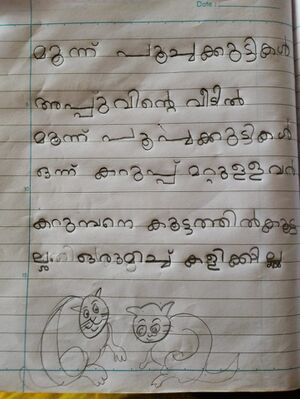 Date :
മൂന്ന് പൂച്ചക്കുട്ടികൾ
അപ്പുവിന്റെ വീട്ടിൽ
മൂന്ന് പൂച്ചക്കുട്ടികൾ
ഒന്ന് കറുപ്പ് മറ്റുള്ളവ
കറുമ്പനെ കൂട്ടത്തിൽകൂട്ട
ഒരുമിച്ച് കളിക്കില്ല